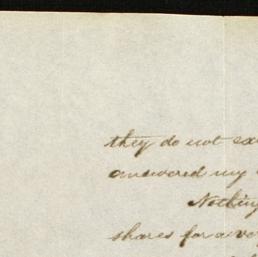 they do not ex
answered my
Nothing
shares for a ve